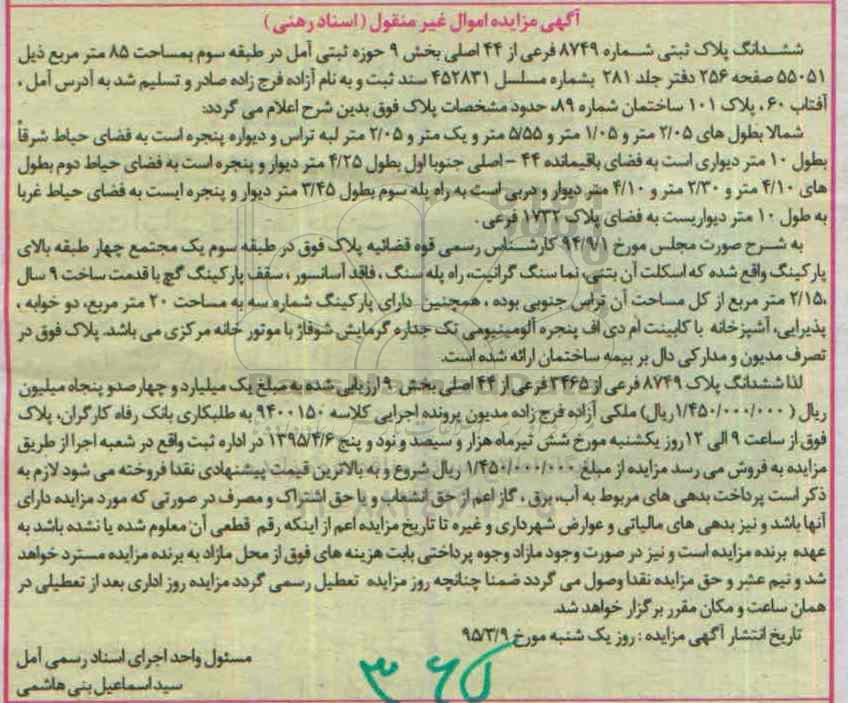 آگهی مزایده اموال غیر منقول (اسناد رهنی)
ششدانگ پلاک ثبتی شماره ۸۷۴۹ فرعی از ۴۴ اصلی بخش ۹ حوزه ثبتی آمل در طبقه سوم بمساحت ۸۵ متر مربع ذیل
۵۵۰۵۱ صفحه ۲۵۶ دفتر جلد ۲۸۱ بشماره مسلسل ۴۵۲۸۳۱ سند ثبت و به نام آزاده فرج زاده صادر و تسلیم شد به آدرس آمل ،
آفتاب ۶۰ ، پلاک ۱۰۱ ساختمان شماره ۸۹، حدود مشخصات پلاک فوق بدین شرح اعلام می گردد:
شمالا بطول های ۲/۰۵ متر و ۱/۰۵ متر و ۵/۵۵ متر و یک متر و ۲/۰۵ متر لبه تراس و دیواره پنجره است به فضای حیاط شرقاً
بطول ۱۰ متر دیواری است به فضای باقیمانده ۴۴ - اصلی جنوبا اول بطول ۴/۲۵ متر دیوار و پنجره است به فضای حیاط دوم بطول
های ۴/۱۰ متر و ۲/۳۰ متر و ۴/۱۰ متر دیوار و دربی است به راه پله سوم بطول ۳/۴۵ متر دیوار و پنجره ایست به فضای حیاط غربا
به طول ۱۰ متر دیواریست به فضای پلاک ۱۷۳۲ فرعی .
به شرح صورت مجلس مورخ ۹۴/۹/۱ کارشناس رسمی قوه قضائیه پلاک فوق در طبقه سوم یک مجتمع چهار طبقه بالای
پارکینگ واقع شده که اسکلت آن بتنی، نما سنگ گرانیت، راه پله سنگ ، فاقد آسانسور ، سقف پارکینگ گچ با قدمت ساخت ۹ سال
،۲/۱۵ متر مربع از کل مساحت آن تراس جنوبی بوده ، همچنین دارای پارکینگ شماره سه به مساحت ۲۰ متر مربع، دو خوابه ،
پذیرایی، آشپزخانه با کابینت ام دی اف پنجره آلومینیومی تک جداره گرمایش شوفاژ با موتور خانه مرکزی می باشد. پلاک فوق در
تصرف مدیون و مدارکی دال بر بیمه ساختمان ارائه شده است.
لذا ششدانگ پلاک ۸۷۴۹ فرعی از ۳۴۶۵ فرعی از ۴۴ اصلی بخش ۹ ارزیابی شده به مبلغ یک میلیارد و چهارصدو پنجاه میلیون
ریال ( ۱/۴۵۰/۰۰۰/۰۰۰ریال) ملکی آزاده فرج زاده مدیون پرونده اجرایی کلاسه ۹۴۰۰۱۵۰ به طلبکاری بانک رفاه کارگران، پلاک
فوق از ساعت ۹ الی ۱۲روز یکشنبه مورخ شش تیرماه هزار و سیصد و نود و پنج ۱۳۹۵/۴/۶ در اداره ثبت واقع در شعبه اجرا از طریق
مزایده به فروش می رسد مزایده از مبلغ ۱/۴۵۰/۰۰۰/۰۰۰ ریال شروع و به بالاترین قیمت پیشنهادی نقدا فروخته می شود لازم به
ذکر است پرداخت بدهی های مربوط به آب، برق ، گاز اعم از حق انشعاب و یا حق اشتراک و مصرف در صورتی که مورد مزایده دارای
آنها باشد و نیز بدهی های مالیاتی و عوارض شهرداری و غیره تا تاریخ مزایده اعم از اینکه رقم قطعی آن معلوم شده یا نشده باشد به
عهده برنده مزایده است و نیز در صورت وجود مازاد وجوه پرداختی بابت هزینه های فوق از محل مازاد به برنده مزایده مسترد خواهد
شد و نیم عشر و حق مزایده نقدا وصول می گردد ضمنا چنانچه روز مزایده تعطیل رسمی گردد مزایده روز اداری بعد از تعطیلی در
همان ساعت و مکان مقرر برگزار خواهد شد.
تاریخ انتشار آگهی مزایده : روز یک شنبه مورخ ۹۵/۳/۹
مسئول واحد اجرای اسناد رسمی آمل
سید اسماعیل بنی هاشمی